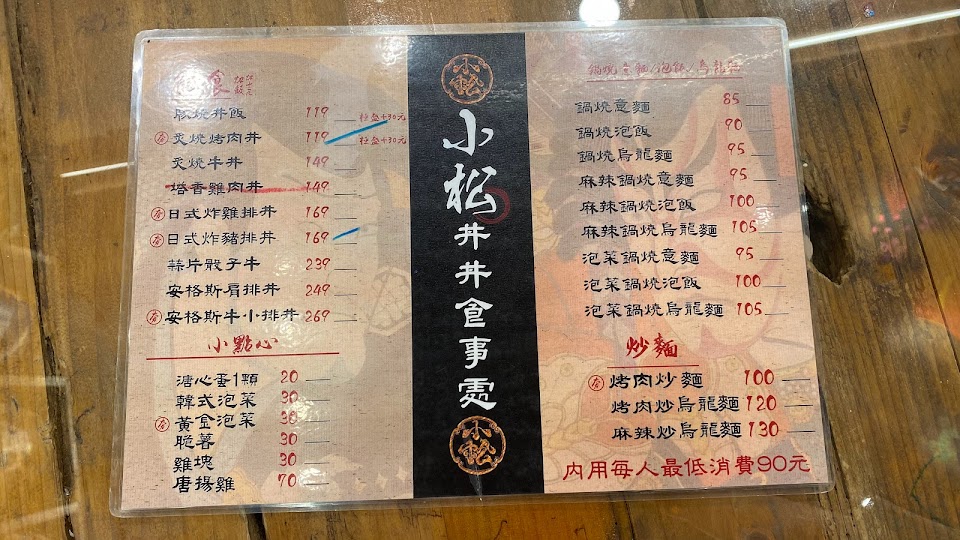 食
豚燒丼飯 119 拉麵+30元
炙燒烤肉丼 119 拉麵+30元
炙燒牛丼 149
塔香雞肉丼 149
日式炸雞排丼 169
日式炸豬排丼 169
蒜片骰子牛 239
安格斯肩排丼 249
安格斯牛小排丼 269
小點心
溏心蛋1顆 20
韓式泡菜 30
黃金泡菜 30
脆薯 30
雞塊 30
唐揚雞 70
小松
小松丼丼食事處
小松
鍋燒意麵/泡飯/烏龍麵
鍋燒意麵 85
鍋燒泡飯 90
鍋燒烏龍麵 95
麻辣鍋燒意麵 95
麻辣鍋燒泡飯 100
麻辣鍋燒烏龍麵 105
泡菜鍋燒意麵 95
泡菜鍋燒泡飯 100
泡菜鍋燒烏龍麵 105
炒麵
烤肉炒麵 100
烤肉炒烏龍麵 120
麻辣炒烏龍麵 130
內用每人最低消費90元